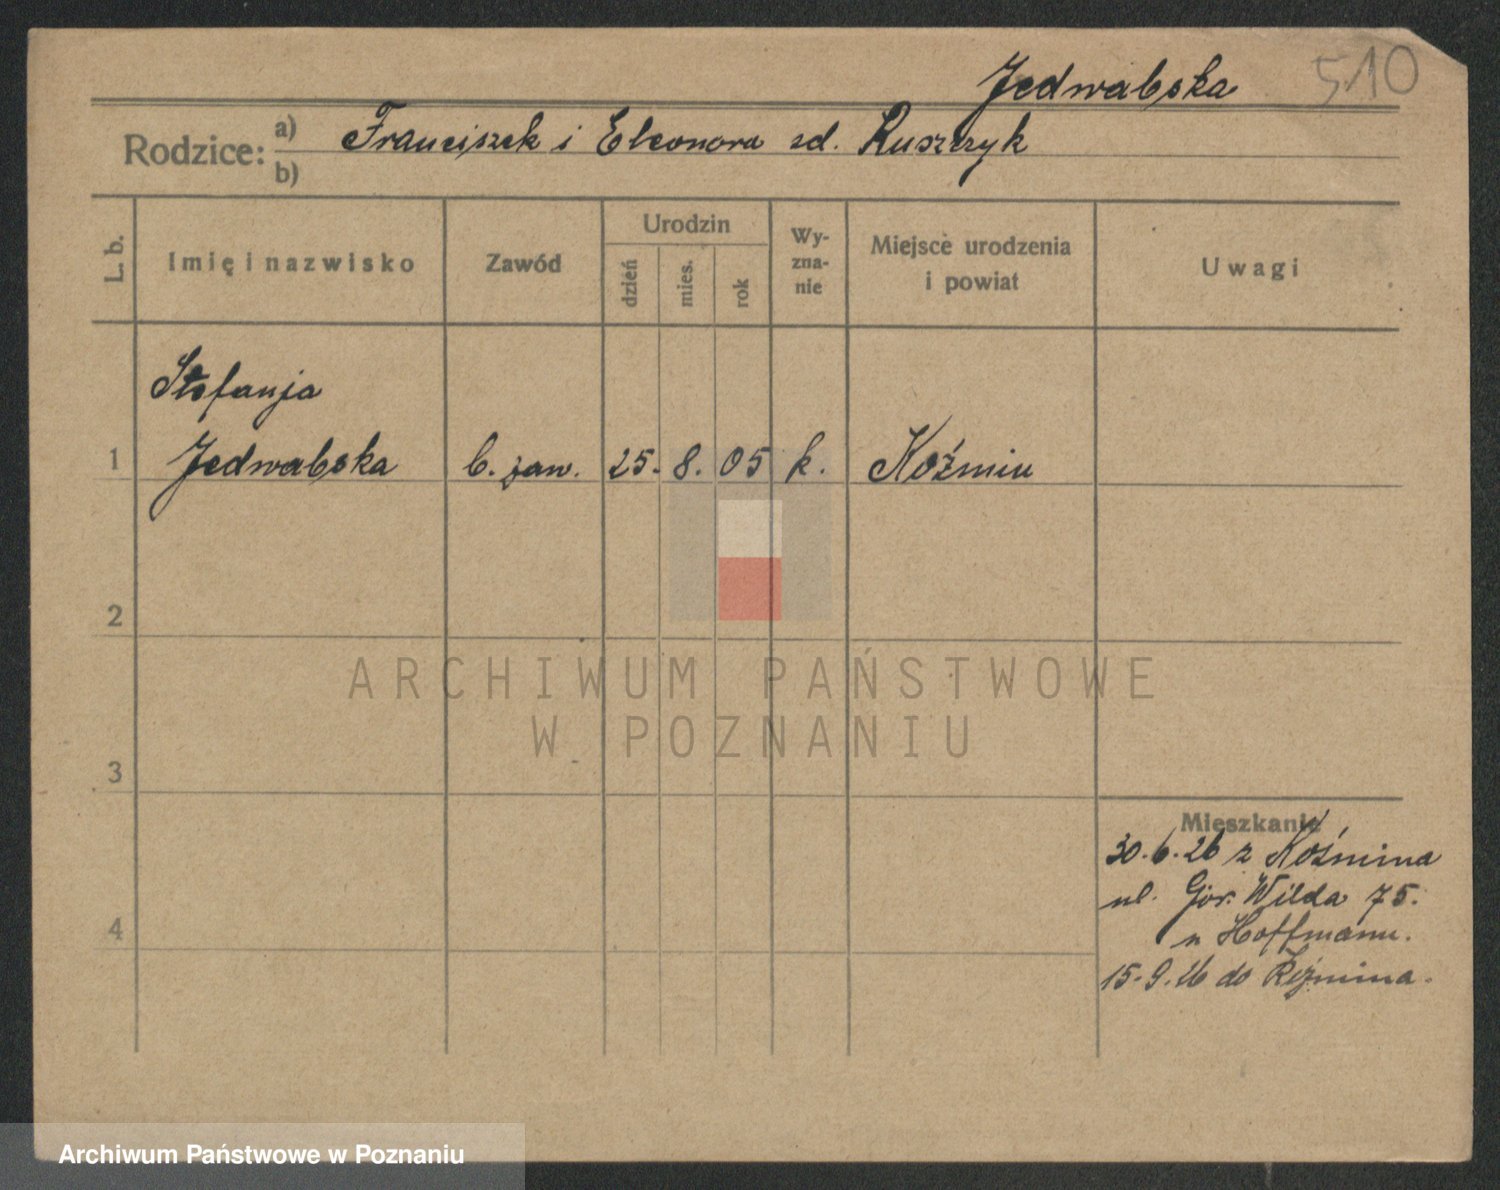 Jedwabska 510
Rodzice: a) Franciszek i Eleonora zd. Ruszczyk
b)
L. b.
Imię i nazwisko
Zawód
Urodzin
dzień
mies.
rok
Wy-
zna-
nie
Miejsce urodzenia
i powiat
Uwagi
Stefanja
1 Jedwabska b. zaw. 25. 8. 05 k. Koźmin
2
3
4
Mieszkanie
30.6.26 z Koźmina
ul. Gór. Wilda 75.
u Hoffmann.
15.9.26 do Koźmina.
ARCHIWUM PAŃSTWOWE
W POZNANIU
Archiwum Państwowe w Poznaniu